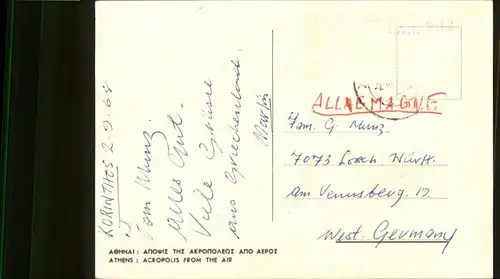 KORINTHOS 2.9.68
Fam Munz.
Alles Gut.
Viele Grüsse
aus Griechenland.
ALLAEMAGNE
Fam. G. Munz.
7073 Lorch Württ.
am Venusberg 19
West-Germany
ΑΘΗΝΑΙ: ΑΠΟΨΙΣ ΤΗΣ ΑΚΡΟΠΟΛΕΩΣ ΑΠΟ ΑΕΡΟΣ
ATHENS: ACROPOLIS FROM THE AIR